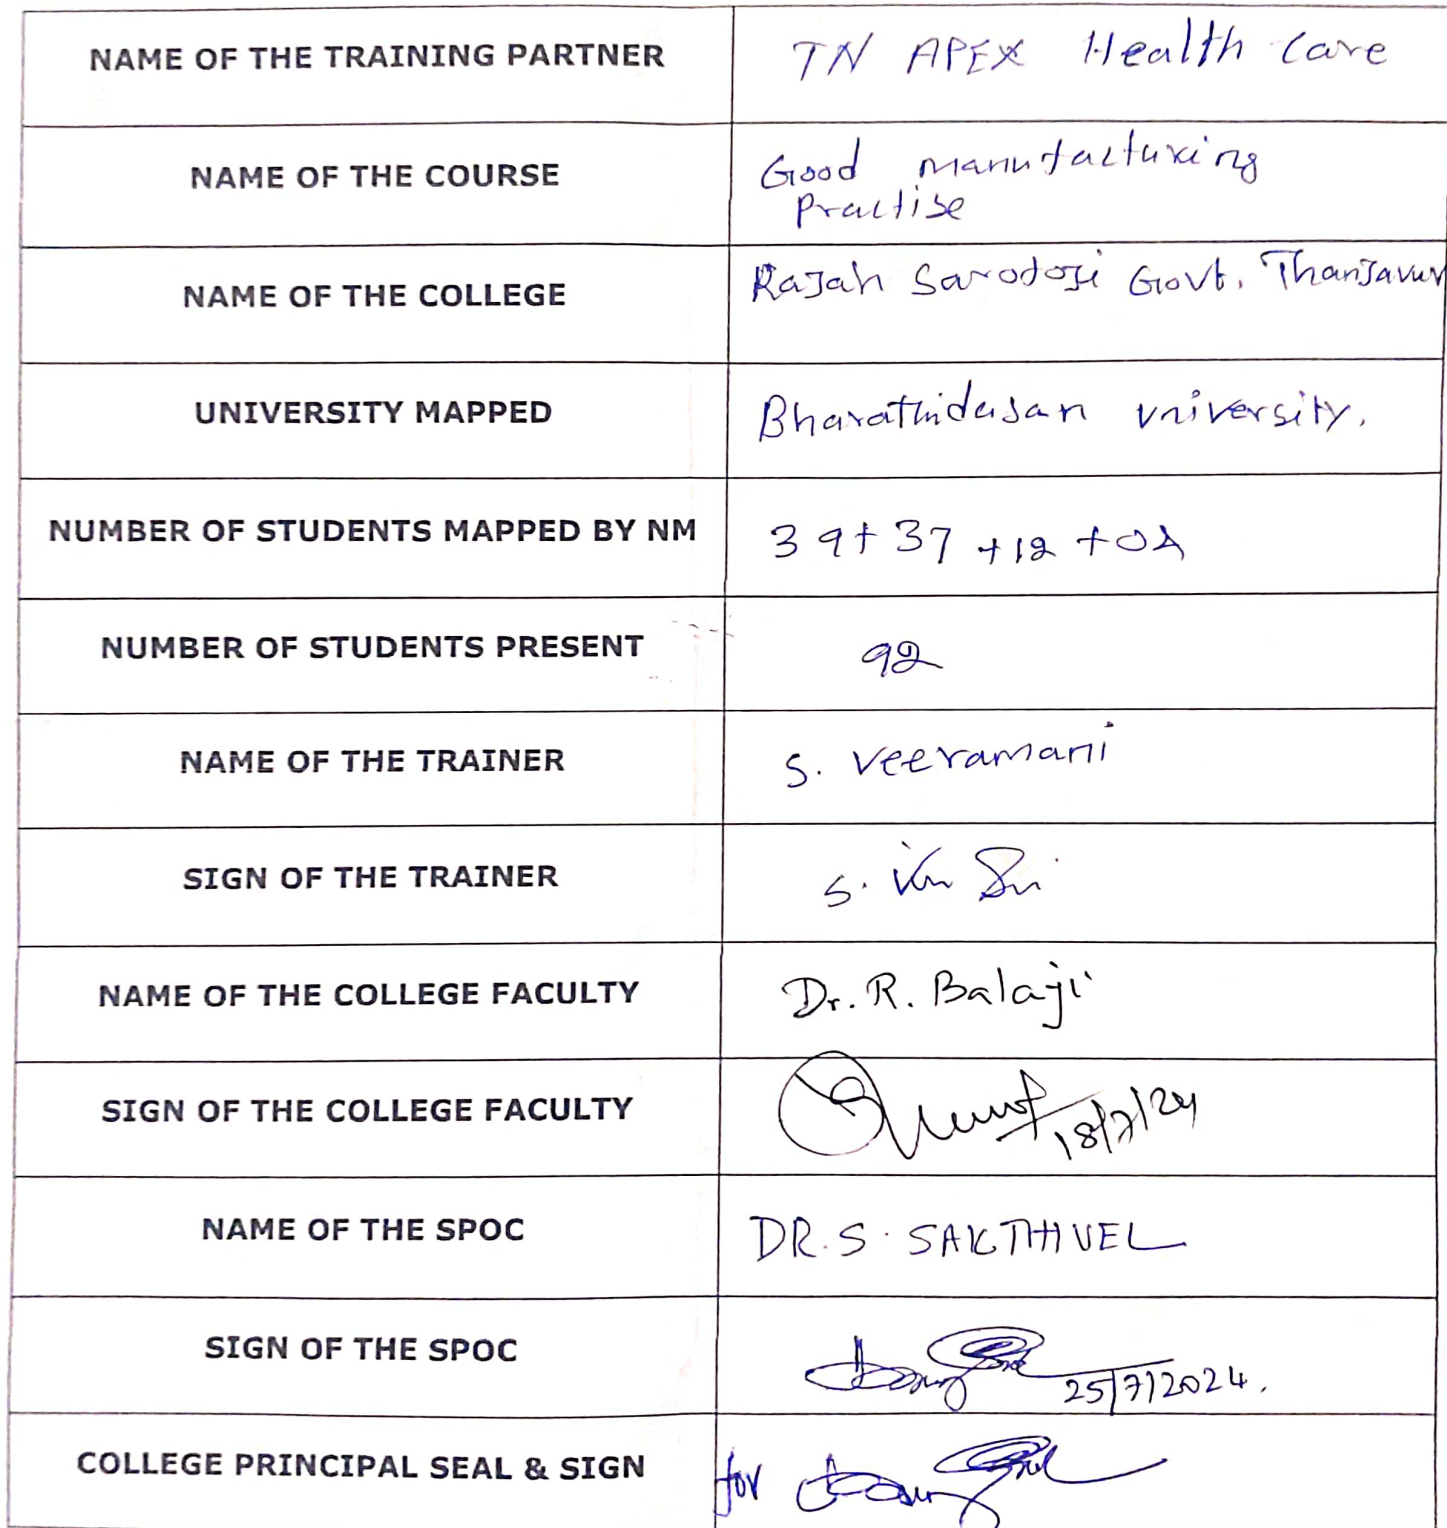 NAME OF THE TRAINING PARTNER TN APEX Health Care
NAME OF THE COURSE Good manufacturing
practise
NAME OF THE COLLEGE Rajah Sarodoji Govt. Thanjavur
UNIVERSITY MAPPED Bharathidasan university.
NUMBER OF STUDENTS MAPPED BY NM 39+37+12+04
NUMBER OF STUDENTS PRESENT 92
NAME OF THE TRAINER S. Veeramani
SIGN OF THE TRAINER S.
NAME OF THE COLLEGE FACULTY Dr. R. Balaji
SIGN OF THE COLLEGE FACULTY 18/7/24
NAME OF THE SPOC DR. S. SAKTHIVEL
SIGN OF THE SPOC 25/7/2024.
COLLEGE PRINCIPAL SEAL & SIGN for